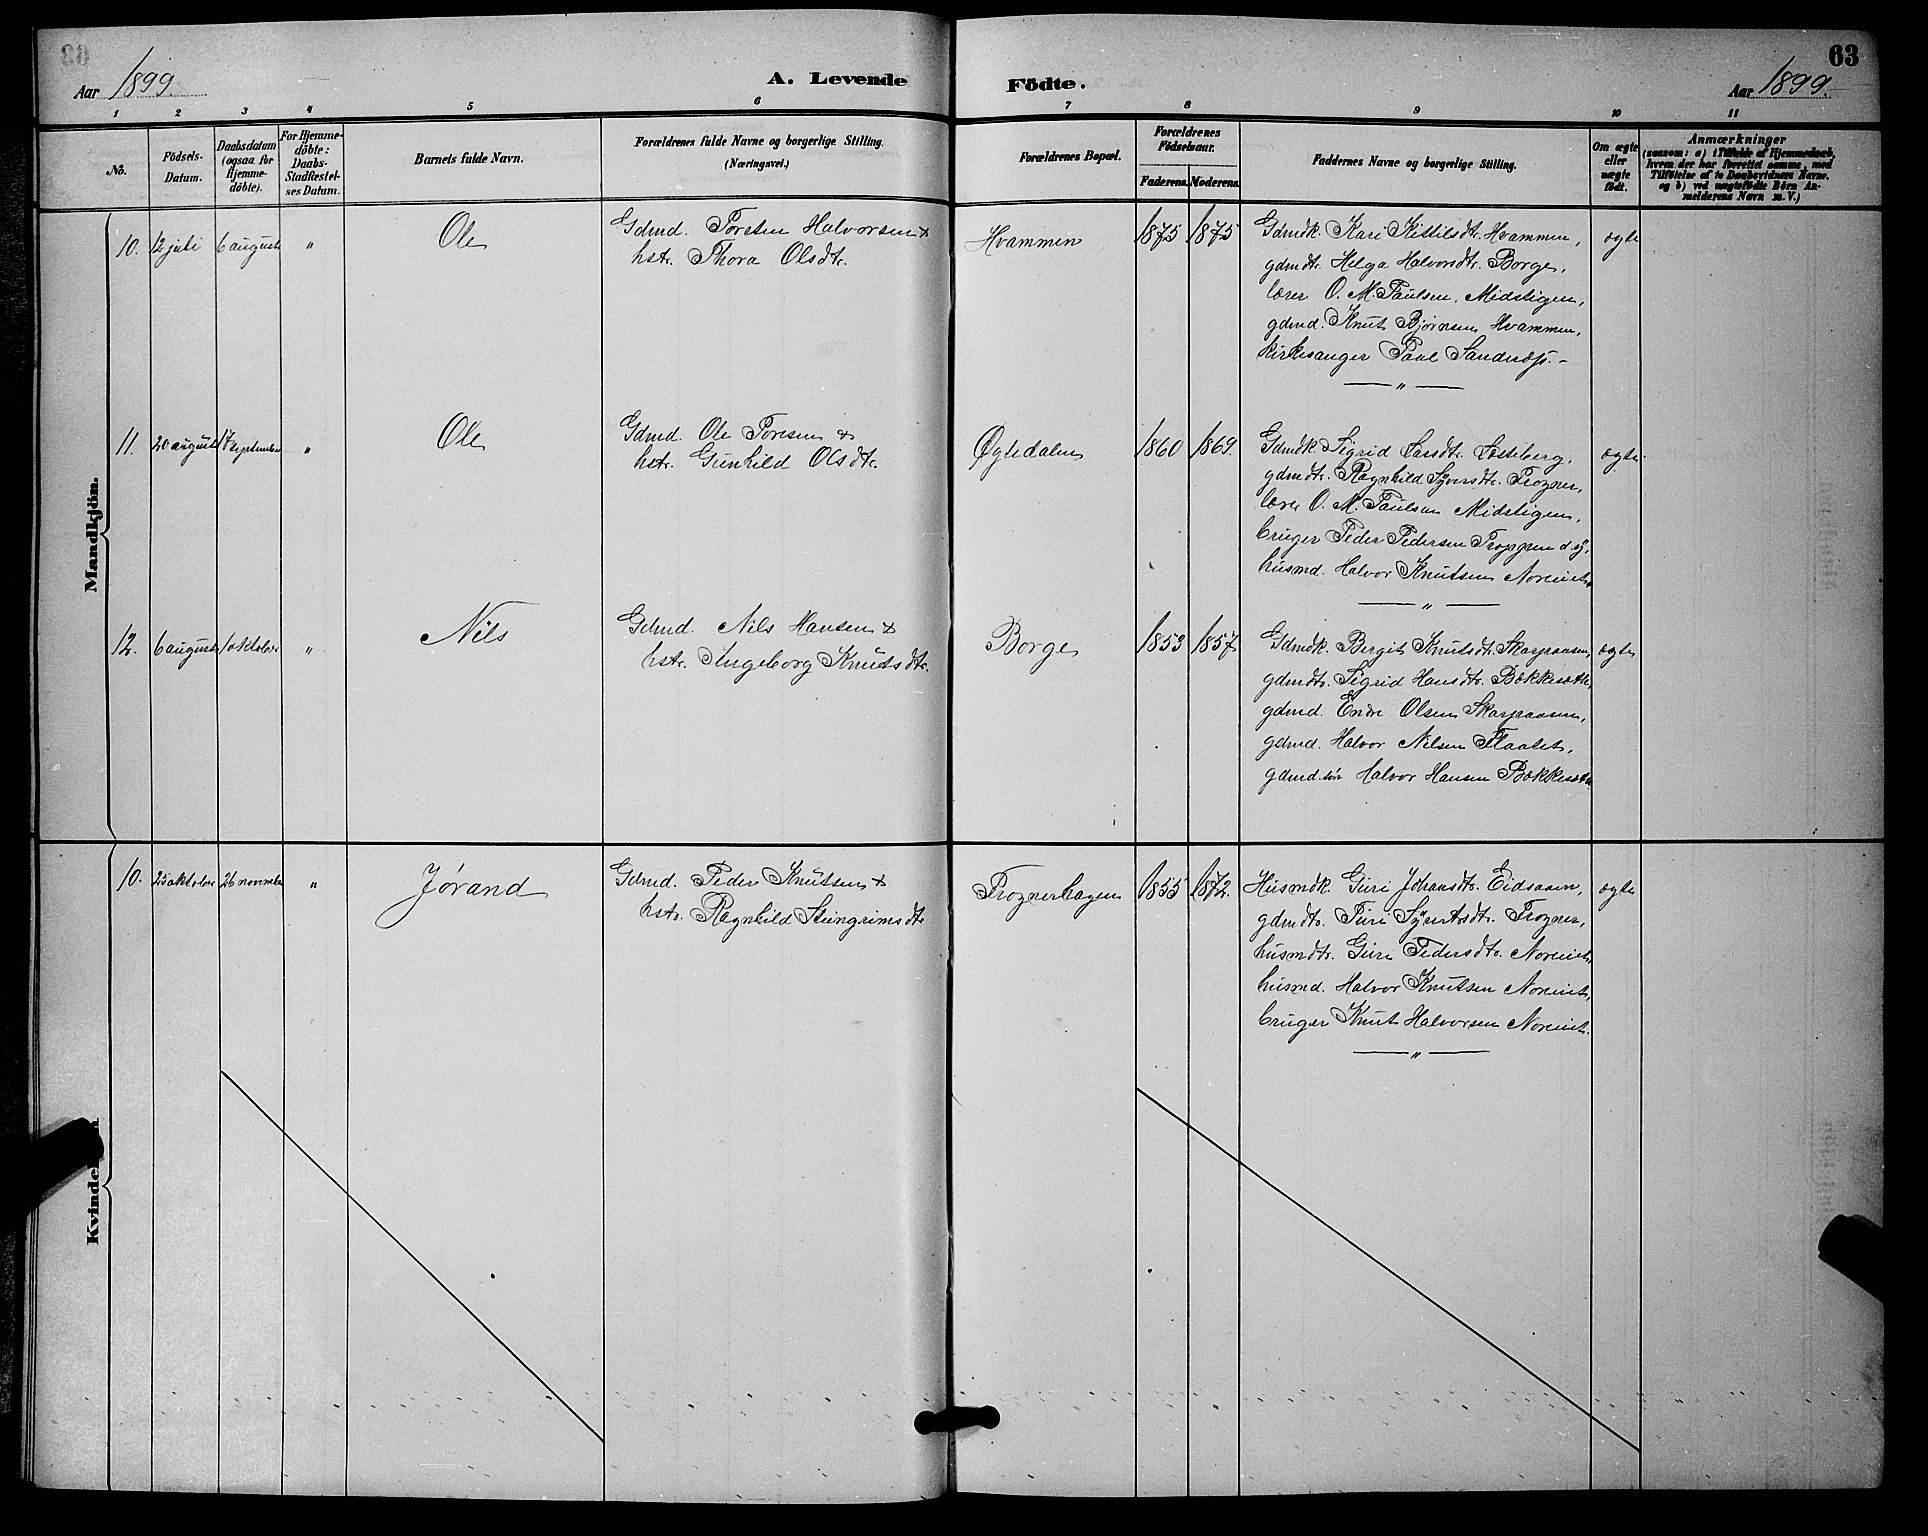 63
Aar 1899. A. Levende Födte. Aar 1899.
1 2 3 4 5 6 7 8 9 10 11
No.
Födsels-
Datum.
Daabsdatum
(ogsaa for
Hjemme-
döbte).
For Hjemme-
döbte:
Daabs-
Stadfæstel-
ses Datum.
Barnets fulde Navn.
Forældrenes fulde Navne og borgerlige Stilling.
(Næringsvei.)
Forældrenes Bopæl.
Forældrenes
Födselsaar.
Faderens. Moderens.
Faddernes Navne og borgerlige Stilling.
Om ægte
eller
uægte
födt.
Anmærkninger
(saasom: a) i Tilfælde af Hjemmedaab,
hvem der har forrettet samme, med
Tilföielse af to Daabsvidners Navne.
og b) ved uægtefödte Börn An-
melderens Navn m. V.)
Mandkjön.
10. 12 juli 6 august " Ole
Gdmd. Torsten Halvorsen &
hstr. Thora Olsdtr.
Hvammen 1875 1875
Gdmdk. Kari Kittilsdtr. Hvammen,
gdmdtr. Helga Halvorsdtr. Borge,
lærer O. M. Paulsen, Midstigen,
gdmd. Knut Bjørnsen Hvammen,
kirkesanger Paul Sandnæss. -
— " —
ægte
11. 20 august 17 september " Ole
Gdmd. Ole Toresen &
hstr. Gunhild Olsdtr.
Øgledalen 1860 1869.
Gdmdk. Sigrid Larsdtr.
gdmdtr. Ragnhild Syversdtr. Frogner,
lærer O. M. Paulsen Midstigen,
bruger Peder Pedersen Troppen d. sy,
husmd. Halvor Knutsen Noreiet.
— " —
ægte
12. 6 august 1 oktober " Nils
Gdmd. Nils Hansen &
hstr. Ingeborg Knutsdtr.
Borge 1853 1857
Gdmdk. Bergit Knutsdtr. Skarpaasen,
gdmdtr. Sigrid Hansdtr. Bækkesæth,
gdmd. Endre Olsen Skarpaasen,
gdmd. Halvor Nilsen Flaatet,
gdmd.søn Halvor Hansen Bækkesæth.
ægte
Kvinde
10. 25 oktober 26 november " Jørand
Gdmd. Peder Knutsen &
hstr. Ragnhild Steingrimsdtr.
Frognerhagen 1855 1872.
Husmdk. Guri Johansdtr. Eidsaaen,
gdmdtr. Turi Syvertsdtr. Frogner,
husmdtr. Guri Pedersdtr. Noreiet,
husmd. Halvor Knutsen Noreiet,
bruger Knut Halvorsen Noreiet.
— " —
ægte